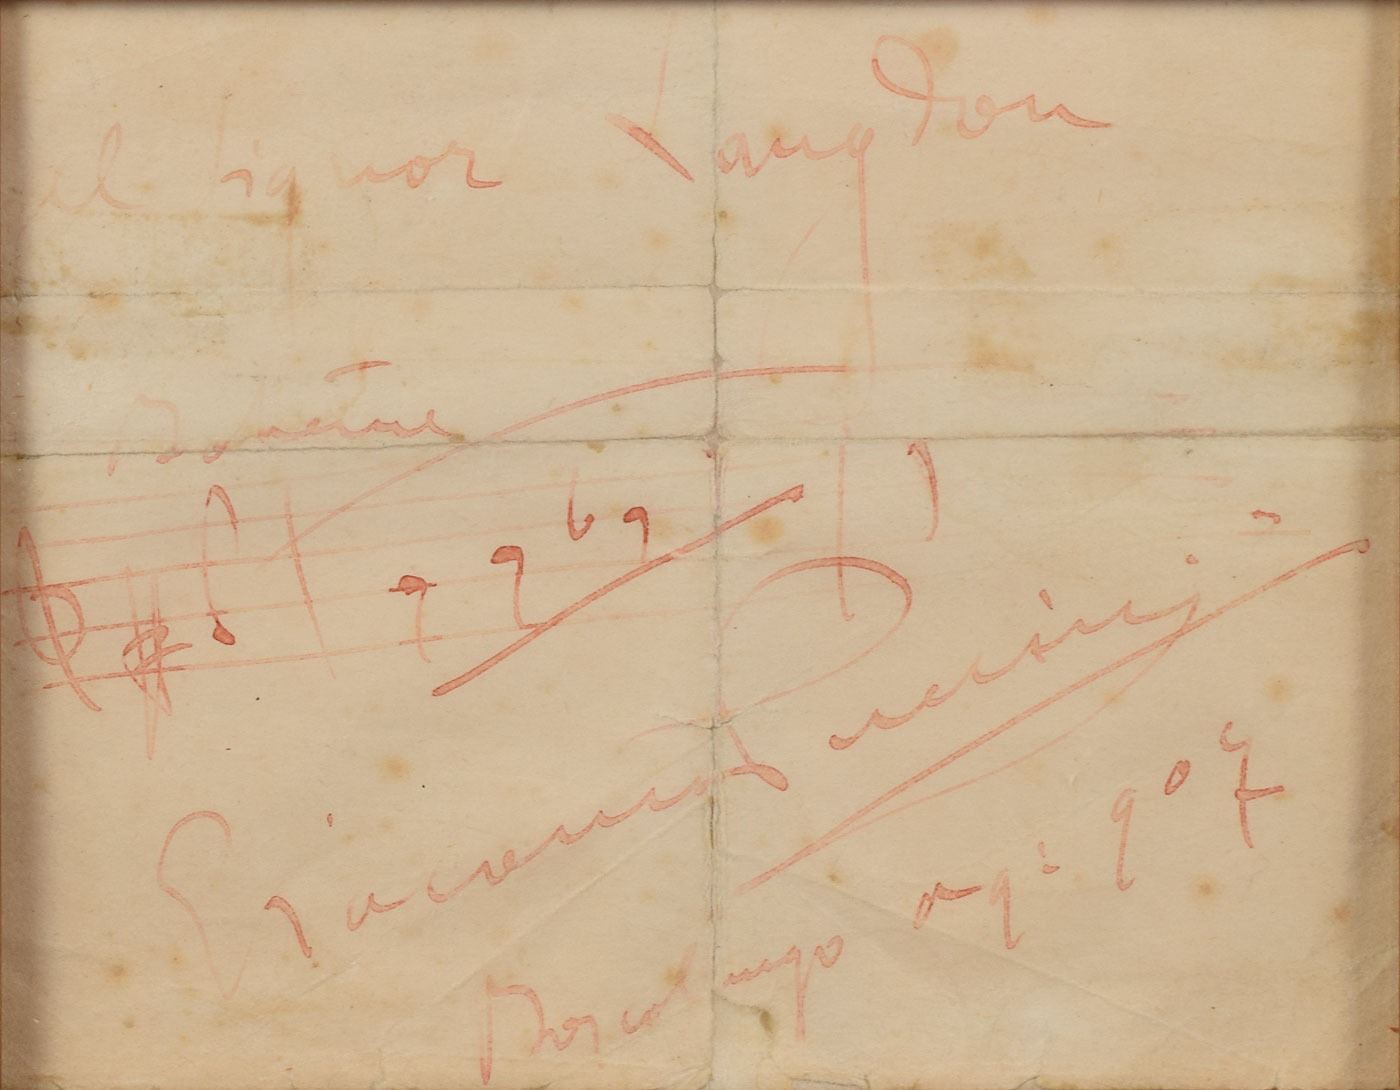 al Signor Langdon
Bohème
Giacomo Puccini
Boscolungo ag: 907